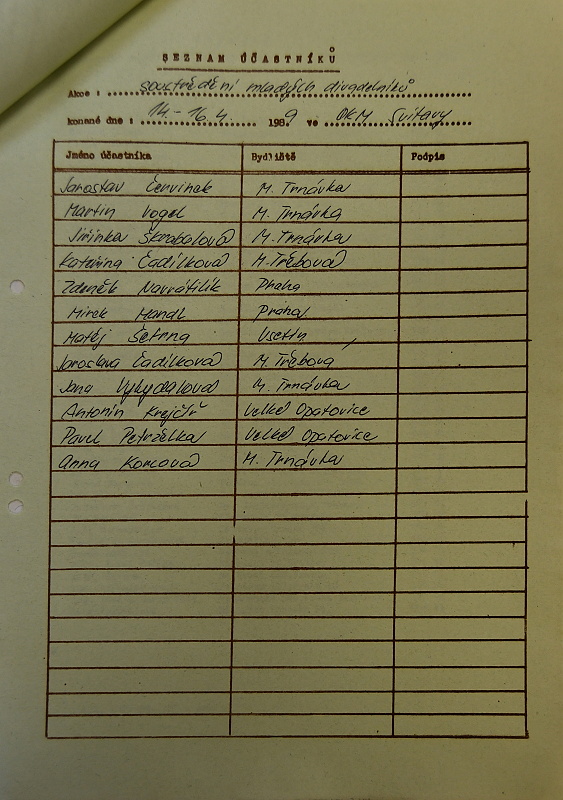 SEZNAM ÚČASTNÍKŮ
Akce : soustředění mladých divadelníků
konané dne : 14.-16.4. 1989 ve OKM Svitavy
Jméno účastníka Bydliště Podpis
Jaroslav Červinek M. Trnávka
Martin Vogel M. Trnávka
Jiřinka Škrabalová M. Trnávka
Kateřina Čadílková M. Třebová
Zdeněk Navrátilík Praha
Mirek Handl Praha
Matěj Šetrna Vsetín
Jaroslava Čadílková M. Třebová
Jana Vykydalová M. Trnávka
Antonín Krejčíř Velké Opatovice
Pavel Petrželka Velké Opatovice
Anna Korcová M. Trnávka